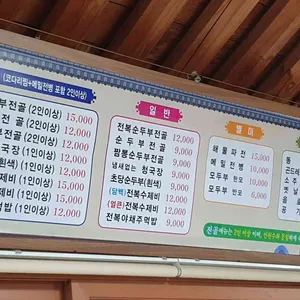 (코다리찜+메밀전병 포함 2인이상)
부전골 (2인이상) 15,000
전골 (2인이상) 12,000
전골 (2인이상) 12,000
국장 (1인이상) 12,000
흰색) (1인이상) 12,000
제비 (1인이상) 15,000
수제비 (1인이상) 15,000
먹밥 (1인이상) 12,000
일반
전복순두부전골 12,000
순두부전골 9,000
짬뽕순두부전골 9,000
냄새없는 청국장 9,000
초당순두부(흰색) 9,000
(담백)전복수제비 12,000
(얼큰)전복수제비 12,000
전복야채주먹밥 9,000
별미
해물파전 15,000
메밀전병 10,000
모두부 한모 10,000
모두부 반모 6,000
동
곤드레
소주
옛
음료
공